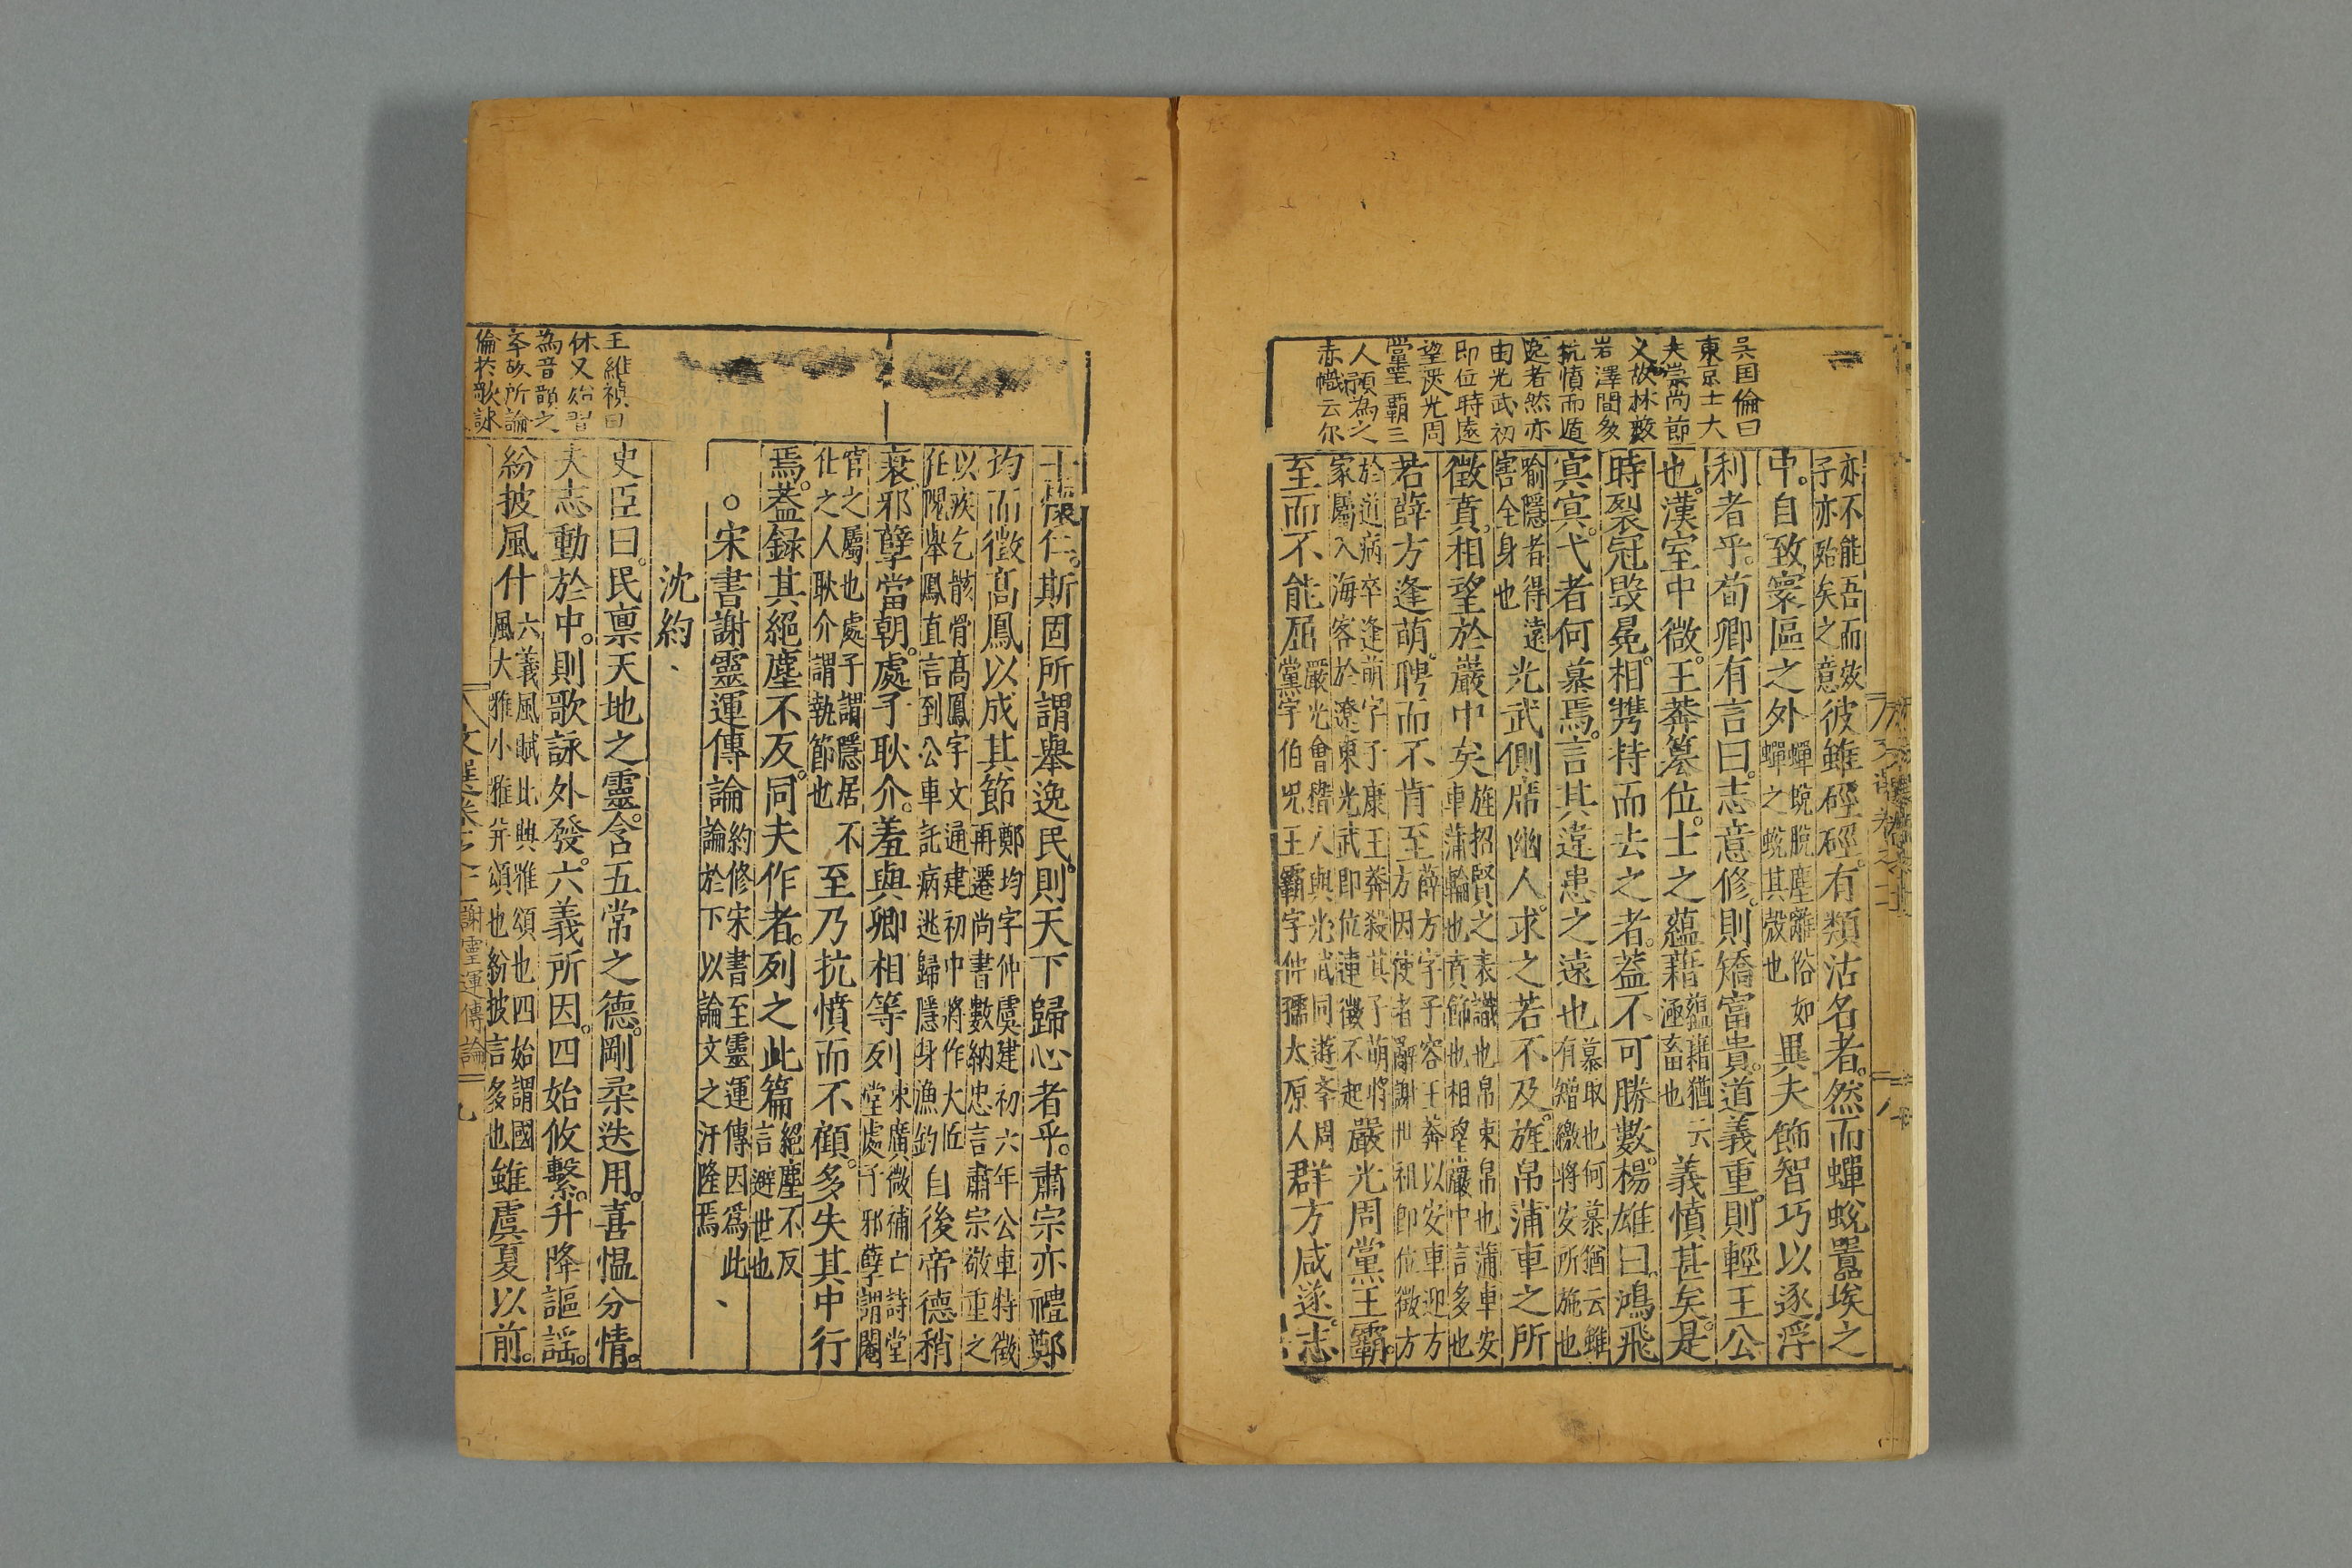 吳国倫曰
東京士大
夫崇尚節
义故林藪
岩澤間多
抗憤而遁
逸若然亦
由光武初
即位時遠
望嚴光周
黨王霸三
人顧為之
赤幟云尔
亦不能吾而效
子亦殆矣之意
彼雖硜硜。有類沽名者。然而蟬蛻囂埃之
中。自致寰區之外
蟬蛻脫塵離俗如
蟬之蛻其殼也
異夫飾智巧以逐浮
利者乎。荀卿有言曰。志意修。則矯富貴。道義重。則輕王公
也。漢室中微。王莽篡位。士之蘊藉
蘊藉猶云
涵畜也
義憤甚矣。是
時裂冠毀冕。相攜持而去之者。葢不可勝數。楊雄曰。鴻飛
冥冥。弋者何慕焉。言其違患之遠也
慕取也何慕猶云雖
有矰繳將安所施也
喻隱者得遠
害全身也
光武側席幽人。求之若不及。旌帛蒲車之所
徵賁。相望於巖中矣
旌招賢之表識也帛束帛也蒲車安
車蒲輪也賁飾也相望巖中言多也
若薛方逢萌。聘而不肯至
薛方字子容王莽以安車迎方
方因使者辭謝世祖即位徵方
於道病卒逢萌字子康王莽殺其子萌將
家屬入海客於遼東光武即位連徵不起
嚴光周黨王霸。
至而不能屈
嚴光會稽人與光武同遊李周
黨字伯况王霸字仲孺太原人
群方咸遂。志
士懷仁。斯固所謂舉逸民。則天下歸心者乎。肅宗亦禮鄭
均而徵高鳳以成其節
鄭均字仲虞建初六年公車特徵
再遷尚書數納忠言肅宗敬重之
以疾乞骸骨高鳳字文通建初中將作大匠
任隗舉鳳直言到公車託病逃歸隱身漁釣
自後帝德稍
衰。邪孽當朝。處子耿介。羞與卿相等列
束廣微補亡詩堂
堂處子邪孽謂閹
官之屬也處子謂隱居不
仕之人耿介謂執節也
至乃抗憤而不顧。多失其中行
焉。葢録其絕塵不反。同夫作者。列之此篇
絕塵不反
言避世也
○宋書謝靈運傳論
約修宋書至靈運傳因爲此
論於下以論文之汙隆焉
沈約
王維禎曰
休文始習
為音韻之
學故所論
倫於歌詠
史臣曰。民禀天地之靈。含五常之德。剛柔迭用。喜愠分情。
夫志動於中。則歌詠外發。六義所因。四始攸繫。升降謳謡。
紛披風什
六義風賦比興雅頌也四始謂國
風大雅小雅并頌也紛披言多也
雖虞夏以前。
文選卷之十二
謝靈運傳論
九